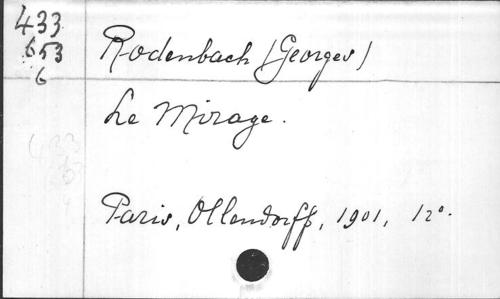 433
653
6
Rodenbach (Georges)
Le Mirage.
Paris, Ollendorff, 1901, 12°.
433